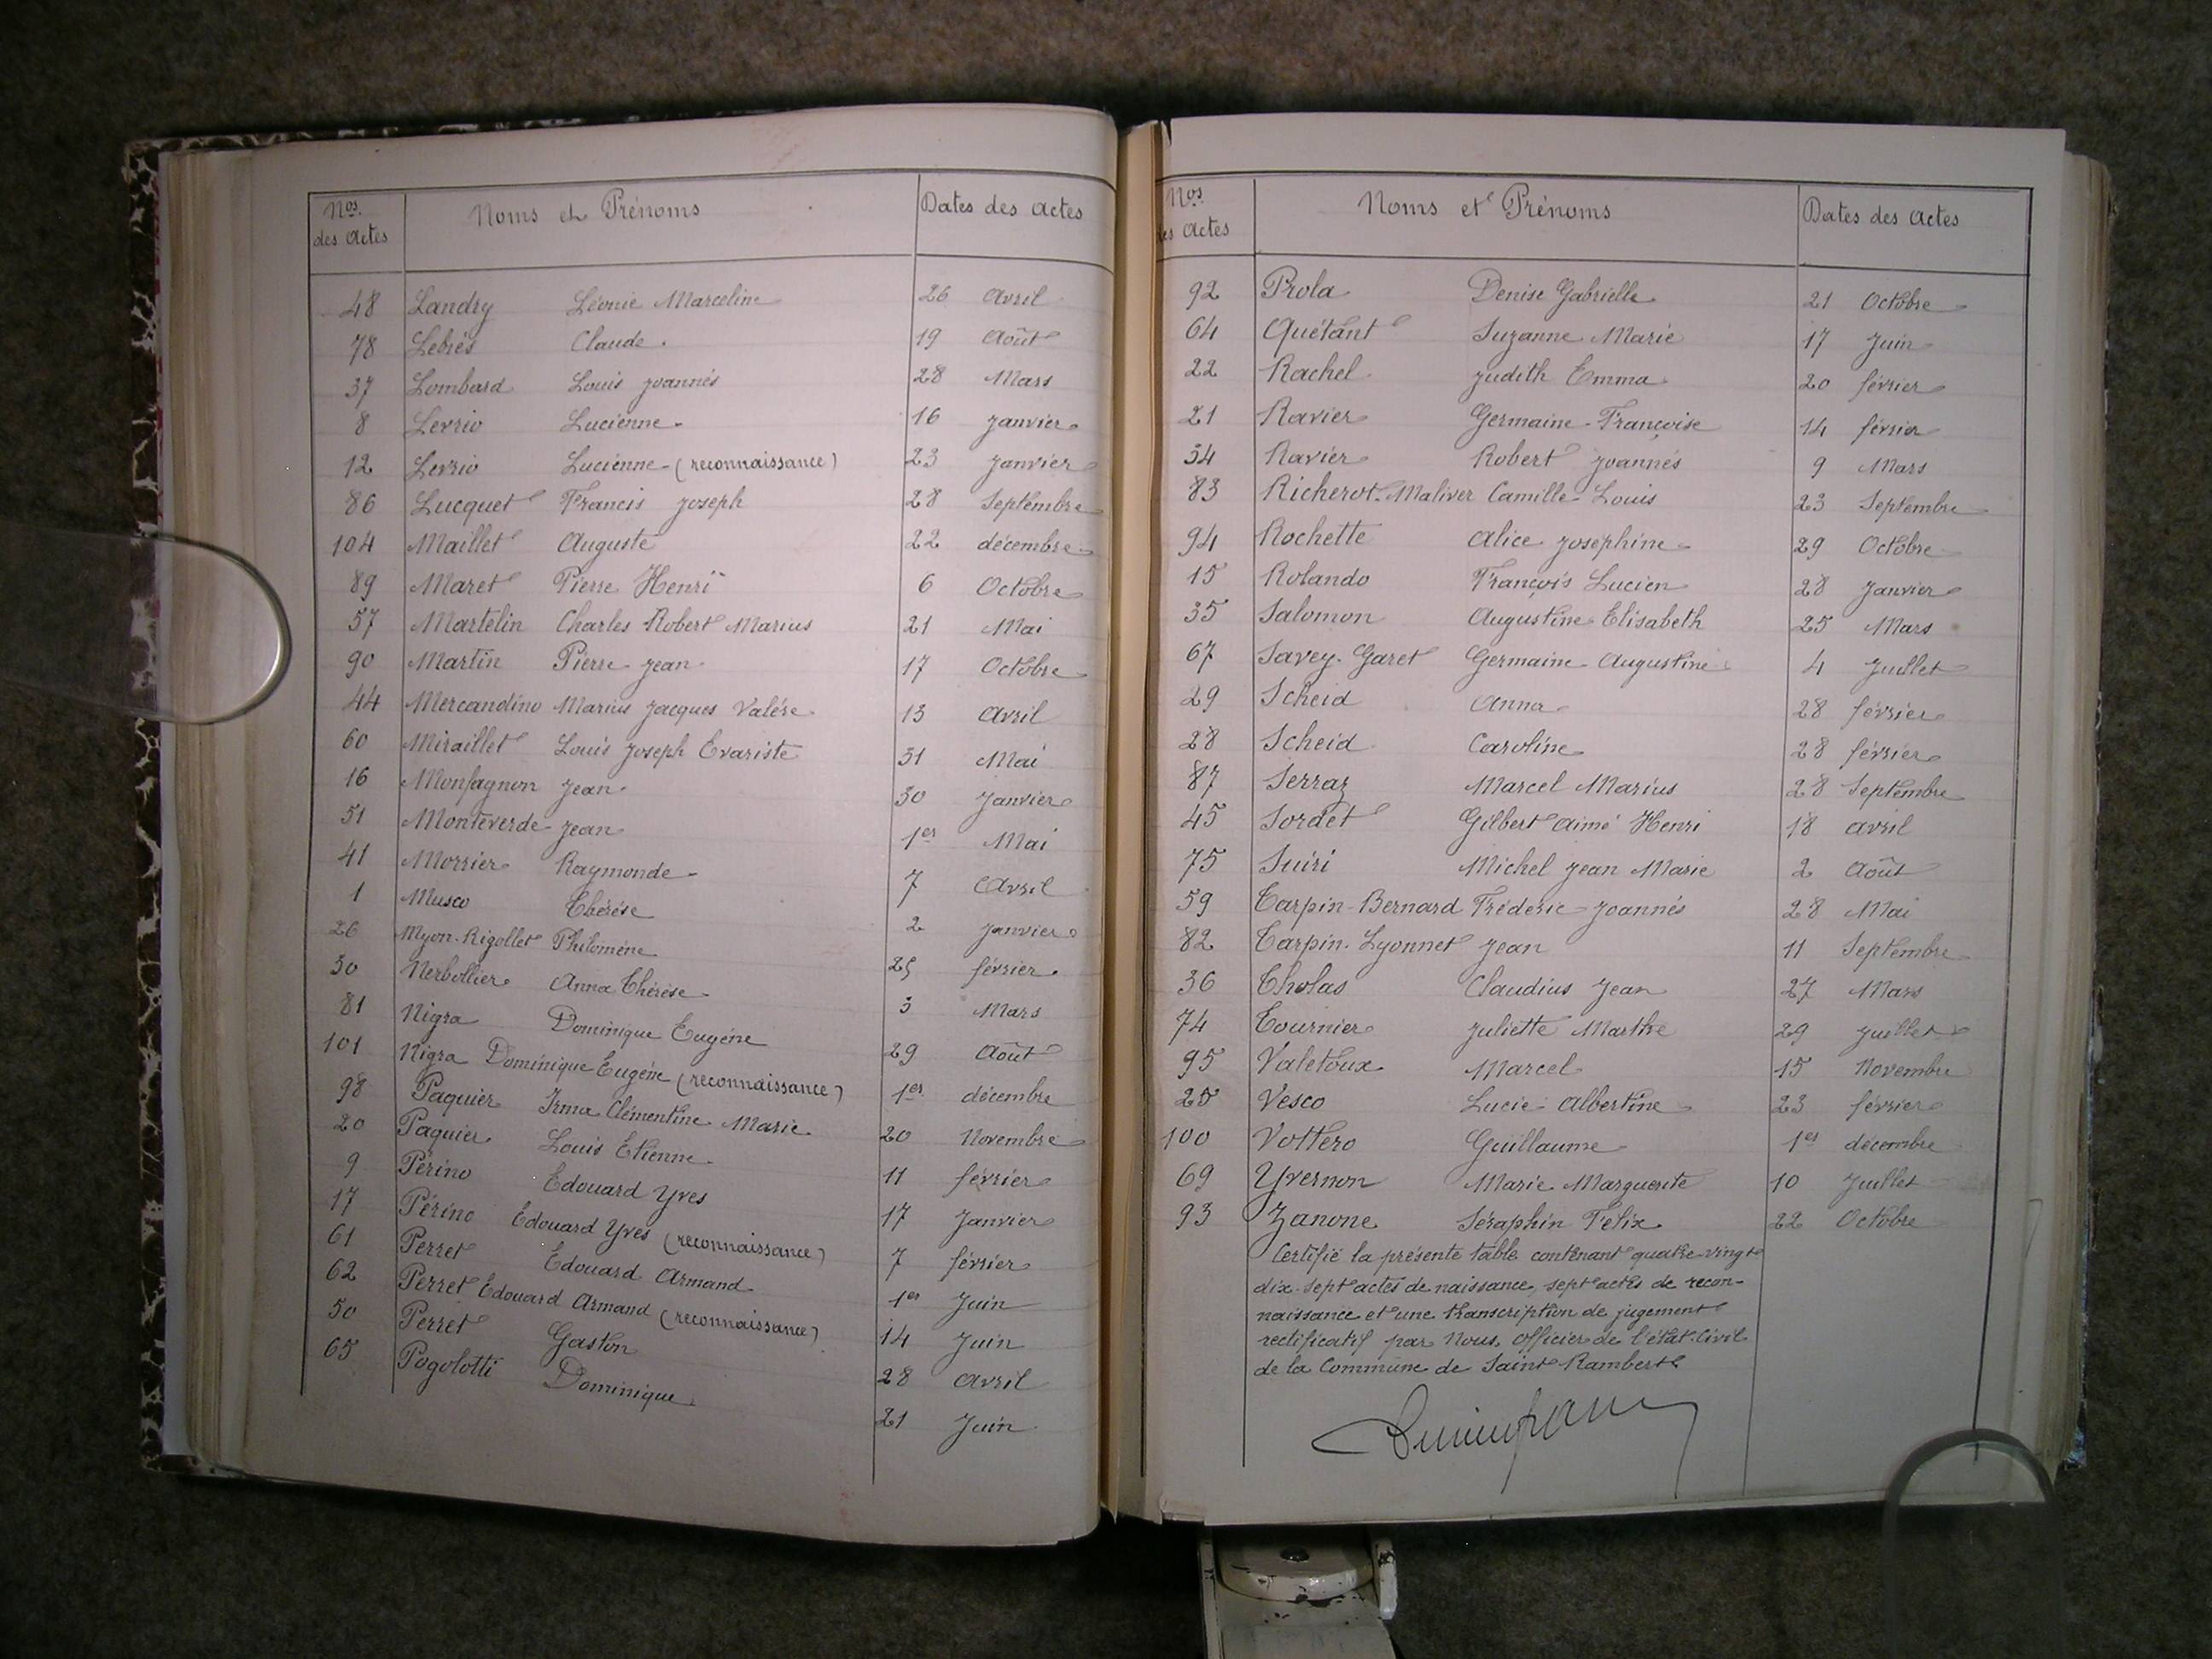 Nos. des Actes Noms et Prénoms Dates des Actes
48 Landry Léonie Marceline 26 Avril
78 Lebrés Claude. 19 Août
37 Lombard Louis Joannés 28 Mars
8 Levrio Lucienne. 16 Janvier
12 Levrio Lucienne (reconnaissance) 23 Janvier
86 Lucquet Francis Joseph 28 Septembre
104 Maillet Auguste 22 décembre
89 Maret Pierre Henri 6 Octobre
57 Martelin Charles Robert Marius 21 Mai
90 Martin Pierre Jean 17 Octobre
44 Mercandino Marius Jacques Valére 13 Avril
60 Miraillet Louis Joseph Evariste 31 Mai
16 Monfagnon Jean 30 Janvier
51 Monteverde Jean 1er Mai
41 Morrier Raymonde 7 Avril
1 Musco Thérése 2 Janvier
26 Myon-Rigollet Philoméne 25 février
30 Nerbollier Anna Thérése 3 Mars
81 Nigra Dominique Eugéne 29 Août
101 Nigra Dominique Eugéne (reconnaissance) 1er décembre
98 Paquier Irma Clémentine Marie 20 Novembre
20 Paquier Louis Etienne 11 février
9 Périno Edouard Yves 17 Janvier
17 Périno Edouard Yves (reconnaissance) 7 février
61 Perret Edouard Armand 1er Juin
62 Perret Edouard Armand (reconnaissance) 14 Juin
50 Perret Gaston 28 Avril
65 Pogolotti Dominique 21 Juin
Nos. des Actes Noms et Prénoms Dates des Actes
92 Prola Denise Gabrielle 21 Octobre
64 Quétant Suzanne Marie 17 Juin
22 Rachel Judith Emma 20 février
21 Ravier Germaine-Françoise 14 février
34 Ravier Robert Joannés 9 Mars
83 Richerot-Maliver Camille-Louis 23 Septembre
94 Rochette Alice Joséphine 29 Octobre
15 Rolando François Lucien 28 Janvier
35 Salomon Augustine Elisabeth 25 Mars
67 Savey-Garet Germaine Augustine 4 Juillet
29 Scheid Anna 28 février
28 Scheid Caroline 28 février
87 Serraz Marcel Marius 28 Septembre
45 Sordet Gilbert Aimé Henri 18 avril
75 Suiri Michel Jean Marie 2 Août
59 Tarpin-Bernard Fréderic Joannés 28 Mai
82 Tarpin-Lyonnet Jean 11 Septembre
36 Tholas Claudius Jean 27 Mars
74 Tournier Juliette Marthe 29 Juillet
95 Valetoux Marcel 15 Novembre
25 Vesco Lucie Albertine 23 février
100 Vottero Guillaume 1er décembre
69 Yvernon Marie Marguerite 10 Juillet
93 Zanone Séraphin Félix 22 Octobre
Certifié la présente table contenant quatre-vingt
dix-sept actes de naissance, sept actes de recon-
naissance et une transcription de jugement
rectificatif par Nous, Officier de l'état-Civil
de la Commune de Saint-Rambert